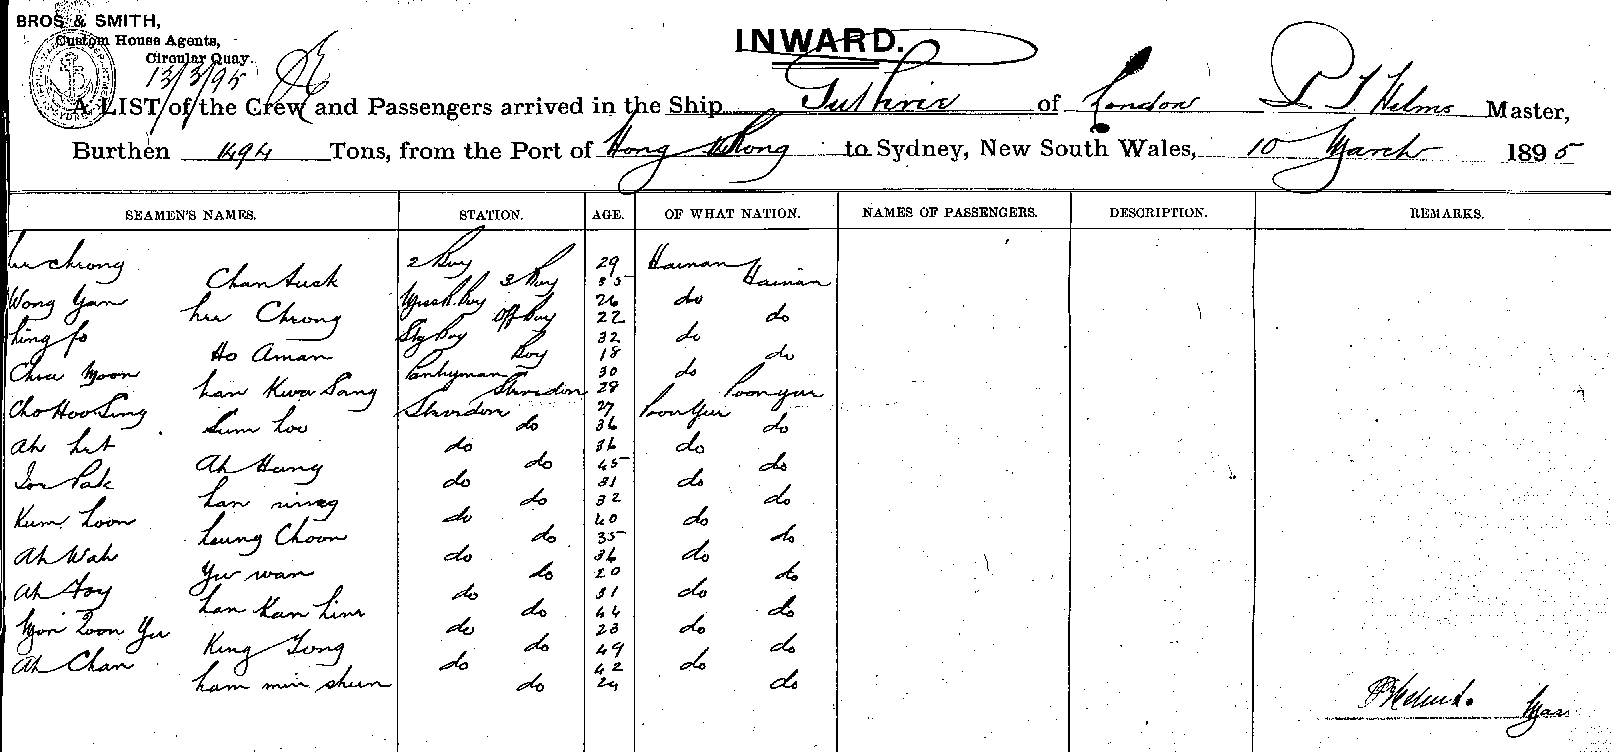 BROS & SMITH,
Custom House Agents,
Circular Quay.
13/3/95
INWARD.
A LIST of the Crew and Passengers arrived in the Ship Guthrie of London P T Helms Master,
Burthen 1494 Tons, from the Port of Hong Kong to Sydney, New South Wales, 10 March 1895
SEAMEN'S NAMES. STATION. AGE. OF WHAT NATION. NAMES OF PASSENGERS. DESCRIPTION. REMARKS.
Chong 2 Boy 29 Hainan
Chan Suck 3 Boy 35 Hainan
Wong Yan Boy 26 do
Chong Boy 22 do
Ling fo Boy 32 do
Ho Aman Boy 18 do
Chee Moon Pantryman 30 do
Lan Kwa Sang 28 Poonyu
Cho Hoo Sing 27 Poonyu
Sum Loo do 36 do
Ah Lut do 36 do
Ah Hang do 45 do
Pak do 31 do
Lan do 32 do
Kum Loon do 40 do
Leung Choon do 35 do
Ah Wah do 36 do
Yu wan do 20 do
Ah Foy do 31 do
Lan Kan Lim do 44 do
Yu do 23 do
King Tong do 49 do
Ah Chan do 42 do
Lam min shun do 24 do